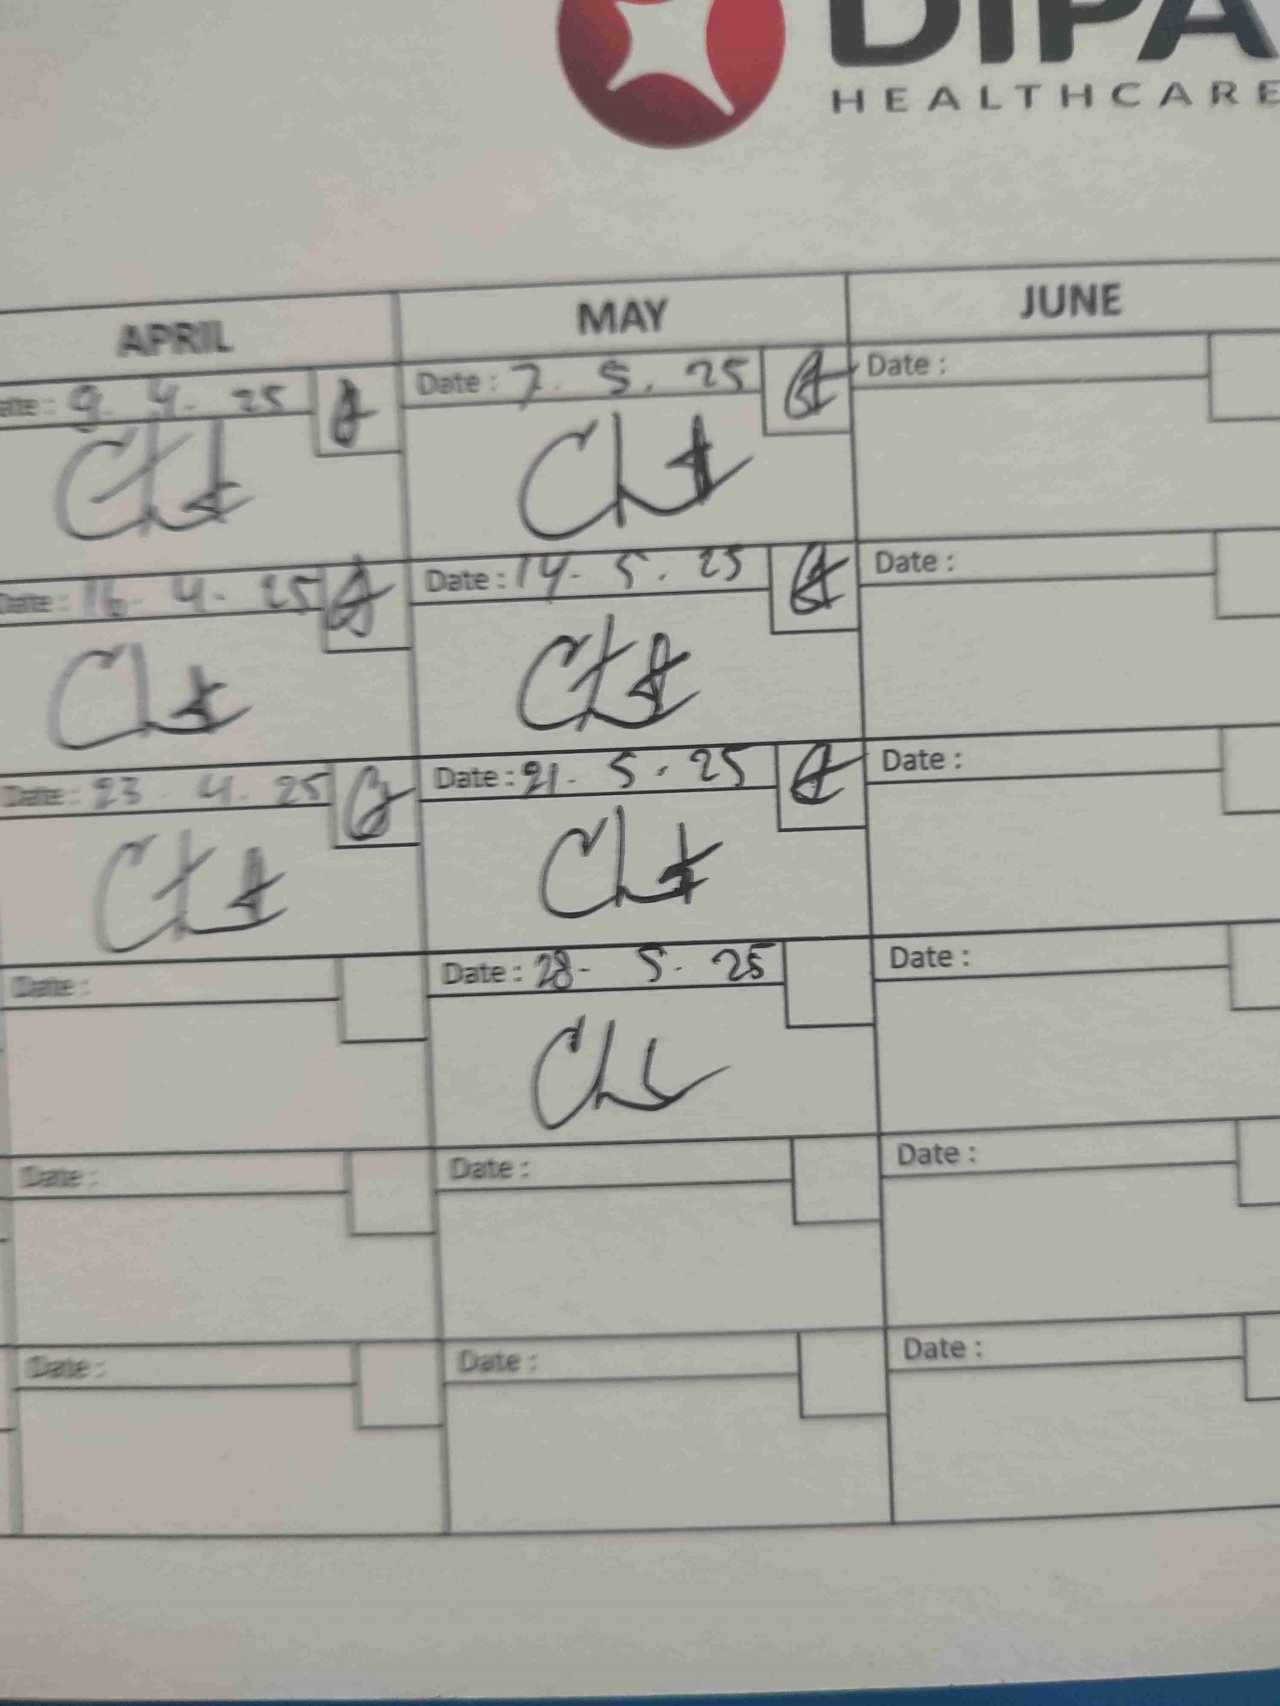 DIPA
HEALTHCARE
APRIL MAY JUNE
Date : 9. 4. 25 Date : 7. 5. 25 Date :
Date : 16- 4- 25 Date : 14- 5. 25 Date :
Date : 23 4. 25 Date : 21- 5. 25 Date :
Date : Date : 28- 5. 25 Date :
Date : Date : Date :
Date : Date : Date :